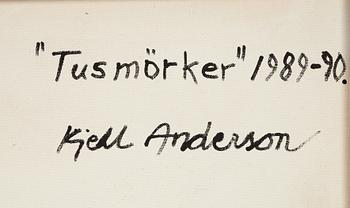 "Tusmörker" 1989-90.
Kjell Anderson